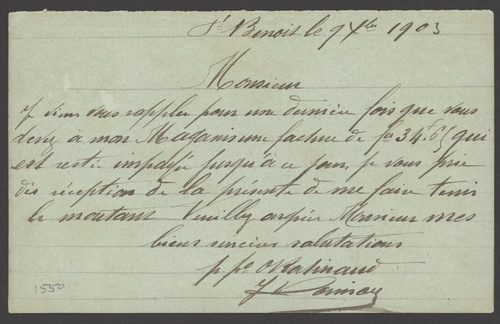 St Benoit le 9 Xbre 1903
Monsieur
Je viens vous rappeler pour une dernière fois que vous
devez à mon Magasin une facture de fr 34.65 qui
est restée impayée jusqu'à ce jour, je vous prie
dès réception de la présente de me faire tenir
le montant Veuillez agréer Monsieur mes
biens sincères salutations
p. po
1550